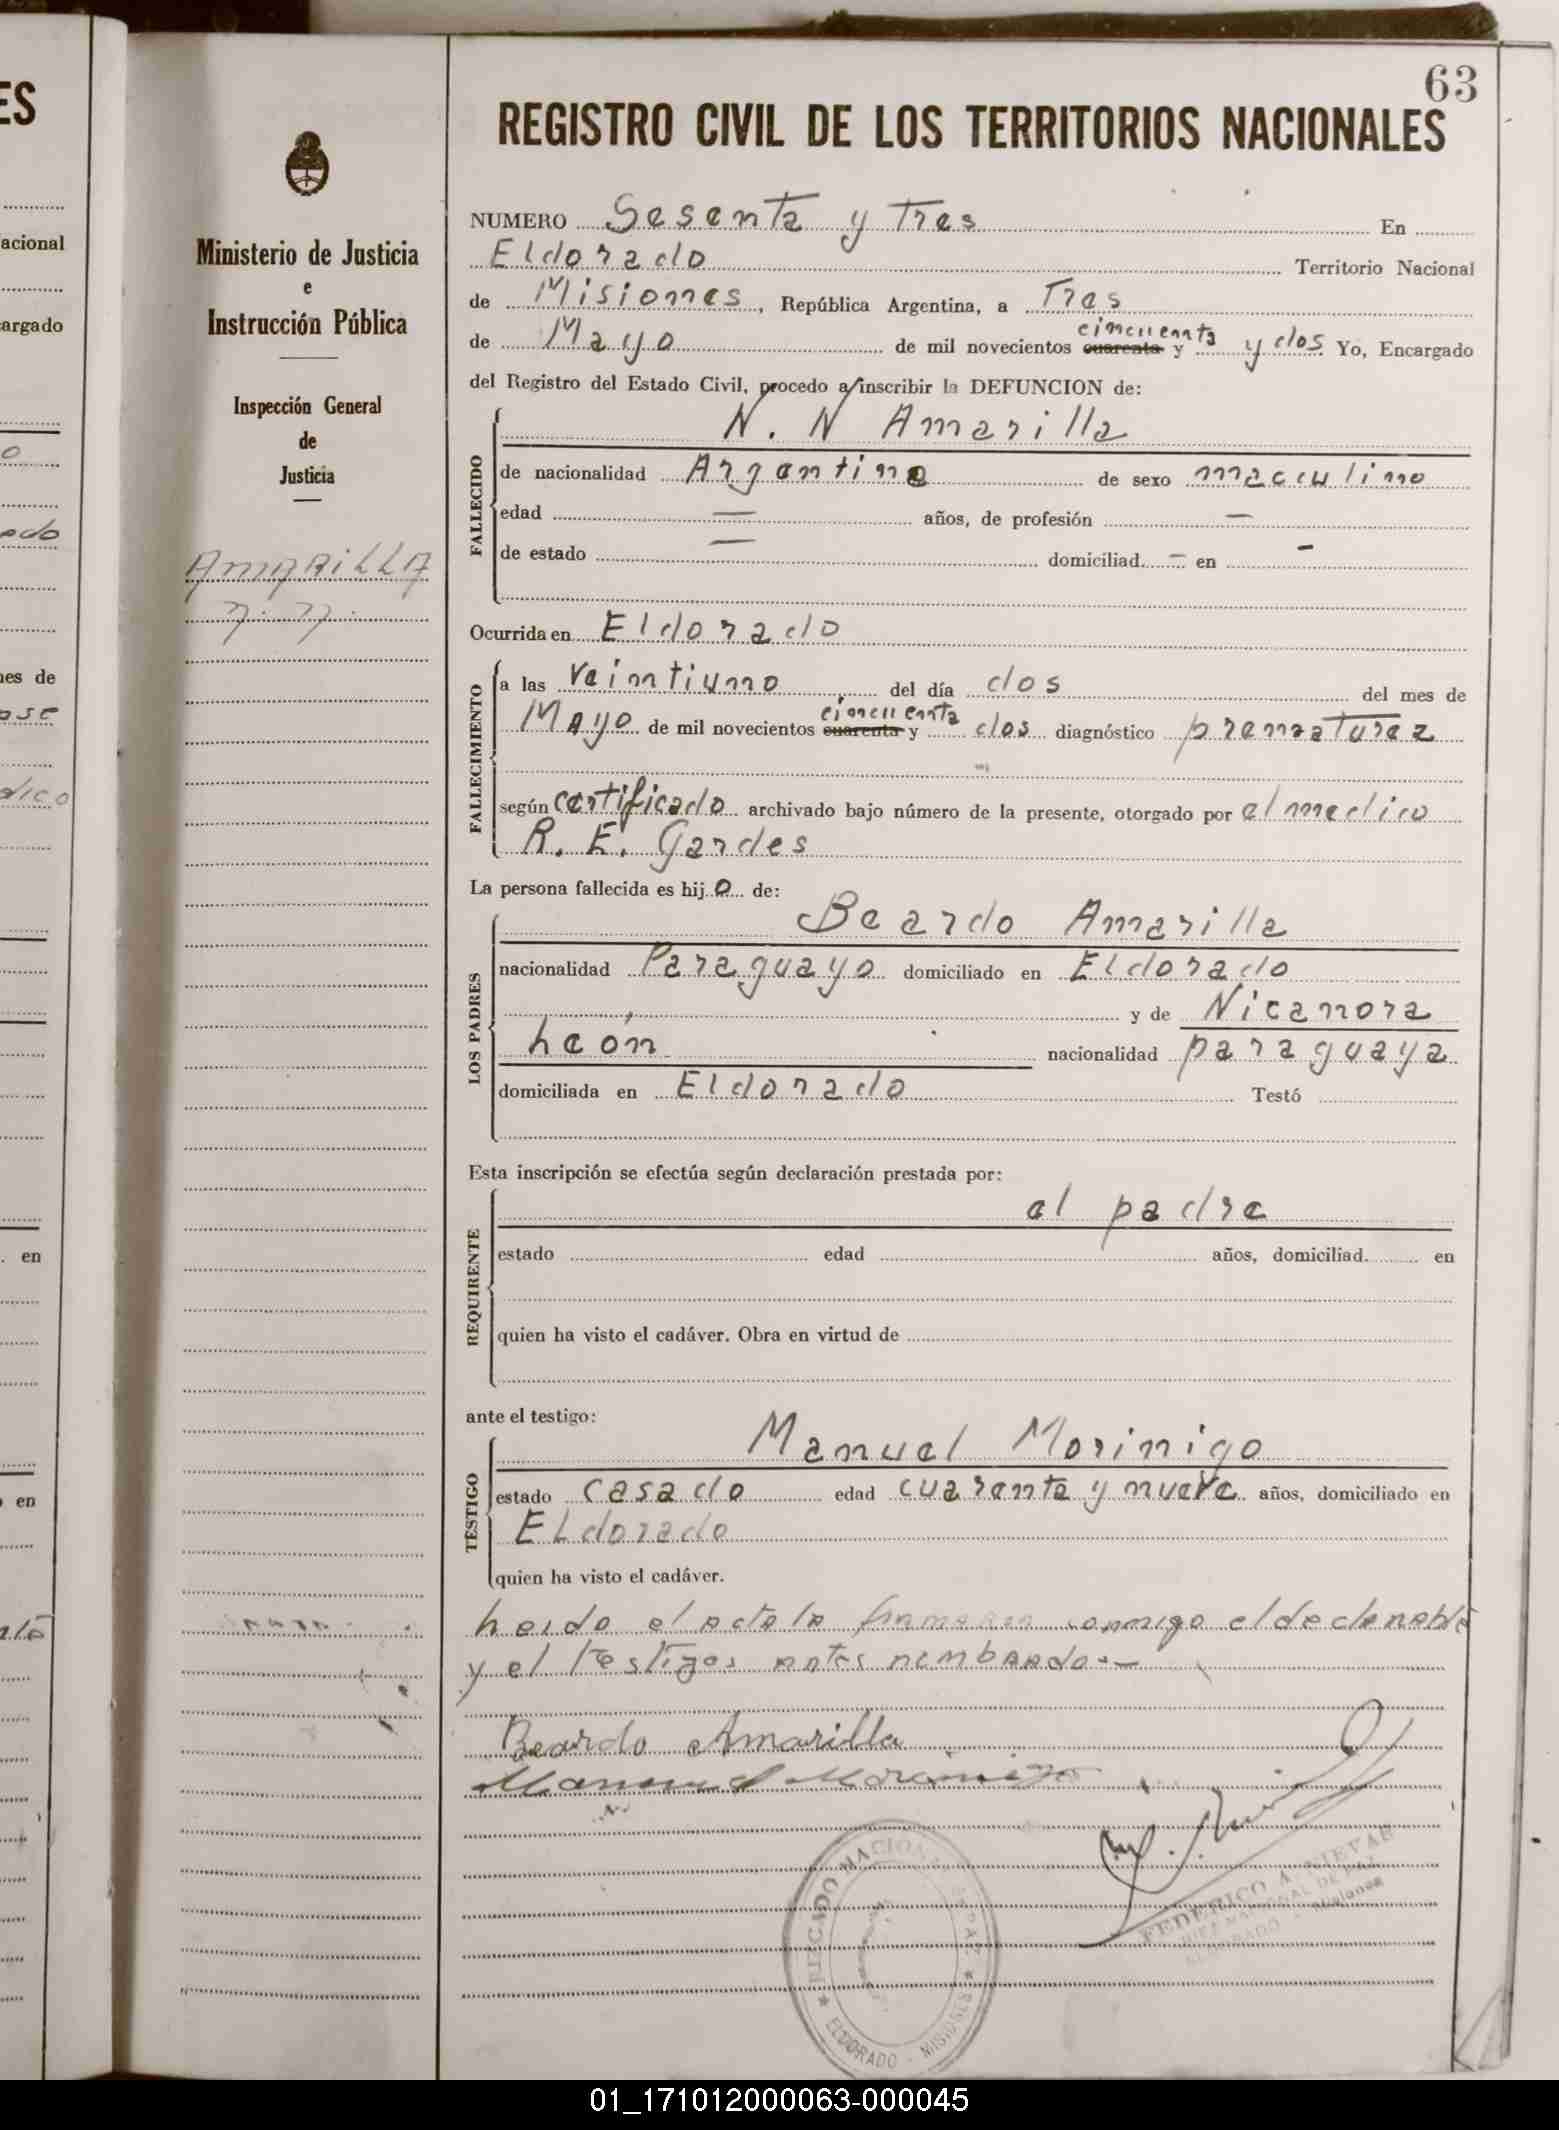 63
REGISTRO CIVIL DE LOS TERRITORIOS NACIONALES
Ministerio de Justicia
e
Instrucción Pública
Inspección General
de
Justicia
AMARILLA
n. n.
NUMERO Sesenta y Tres En
Eldorado Territorio Nacional
de Misiones, República Argentina, a Tres
de Mayo de mil novecientos cuarenta y cincuenta y dos Yo, Encargado
del Registro del Estado Civil, procedo a inscribir la DEFUNCION de:
FALLECIDO
N. N Amarilla
de nacionalidad Argentino de sexo macculino
edad — años, de profesión —
de estado — domiciliad — en -
Ocurrida en Eldorado
FALLECIMIENTO
a las veintiuno del día dos del mes de
Mayo de mil novecientos cuarenta y cincuenta dos diagnóstico prematurez
según certificado archivado bajo número de la presente, otorgado por el medico
R. E. Gardes
La persona fallecida es hijo de:
LOS PADRES
Beardo Amarilla
nacionalidad Paraguayo domiciliado en Eldorado
y de Nicanora
León nacionalidad paraguaya
domiciliada en Eldorado Testó
Esta inscripción se efectúa según declaración prestada por:
REQUIRENTE
el padre
estado edad años, domiciliad en
quien ha visto el cadáver. Obra en virtud de
ante el testigo:
TESTIGO
Manuel Morinigo
estado casado edad cuarenta y nueve años, domiciliado en
ELdorado
quien ha visto el cadáver.
Leido el acta la firmaron conmigo el declarante
y el testigos antes nombrado.—
Beardo Amarilla
Manuel Morinigo
FEDERICO A. NIEVAS
JUEZ NACIONAL DE PAZ
ELDORADO - Misiones
JUZGADO NACIONAL DE PAZ
ELDORADO - MISIONES
01_171012000063-000045